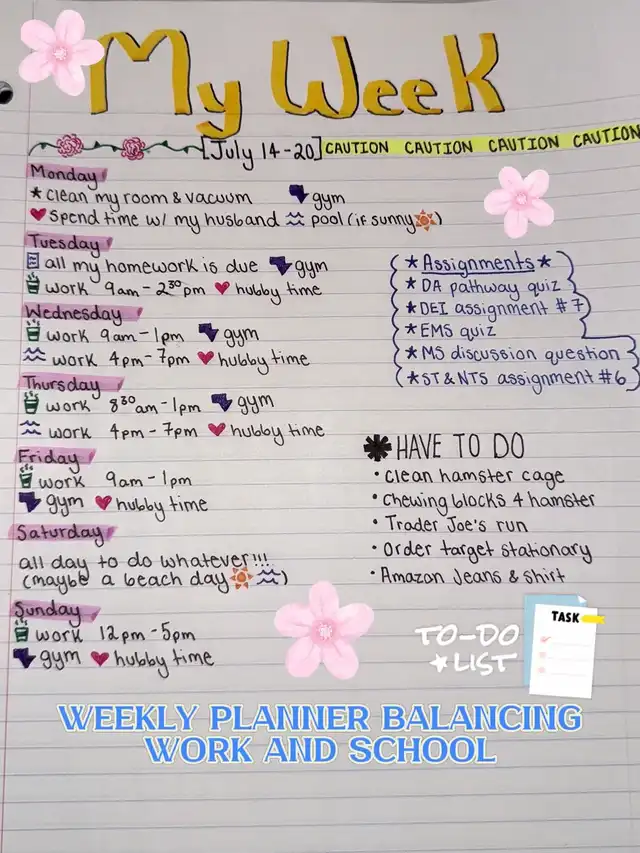 My Week
[July 14-20] CAUTION CAUTION CAUTION CAUTION
Monday
clean my room & vacuum gym
spend time w/ my husband pool (if sunny)
Tuesday
all my homework is due gym
work 9am - 2³⁰pm hubby time
Wednesday
work 9am - 1pm gym
work 4pm - 7pm hubby time
Thursday
work 8³⁰am - 1pm gym
work 4pm - 7pm hubby time
Friday
work 9am - 1pm
gym hubby time
Saturday
all day to do whatever!!!
(maybe a beach day)
Sunday
work 12pm - 5pm
gym hubby time
Assignments
DA pathway quiz
DEI assignment #7
EMS quiz
MS discussion question
ST & NTS assignment #6
HAVE TO DO
• Clean hamster cage
• Chewing blocks 4 hamster
• Trader Joe's run
• Order target stationary
• Amazon Jeans & shirt
TO-DO
LIST
TASK
WEEKLY PLANNER BALANCING
WORK AND SCHOOL